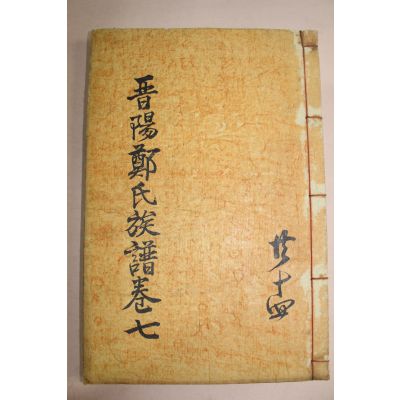 晋陽鄭氏族譜卷七
共十四